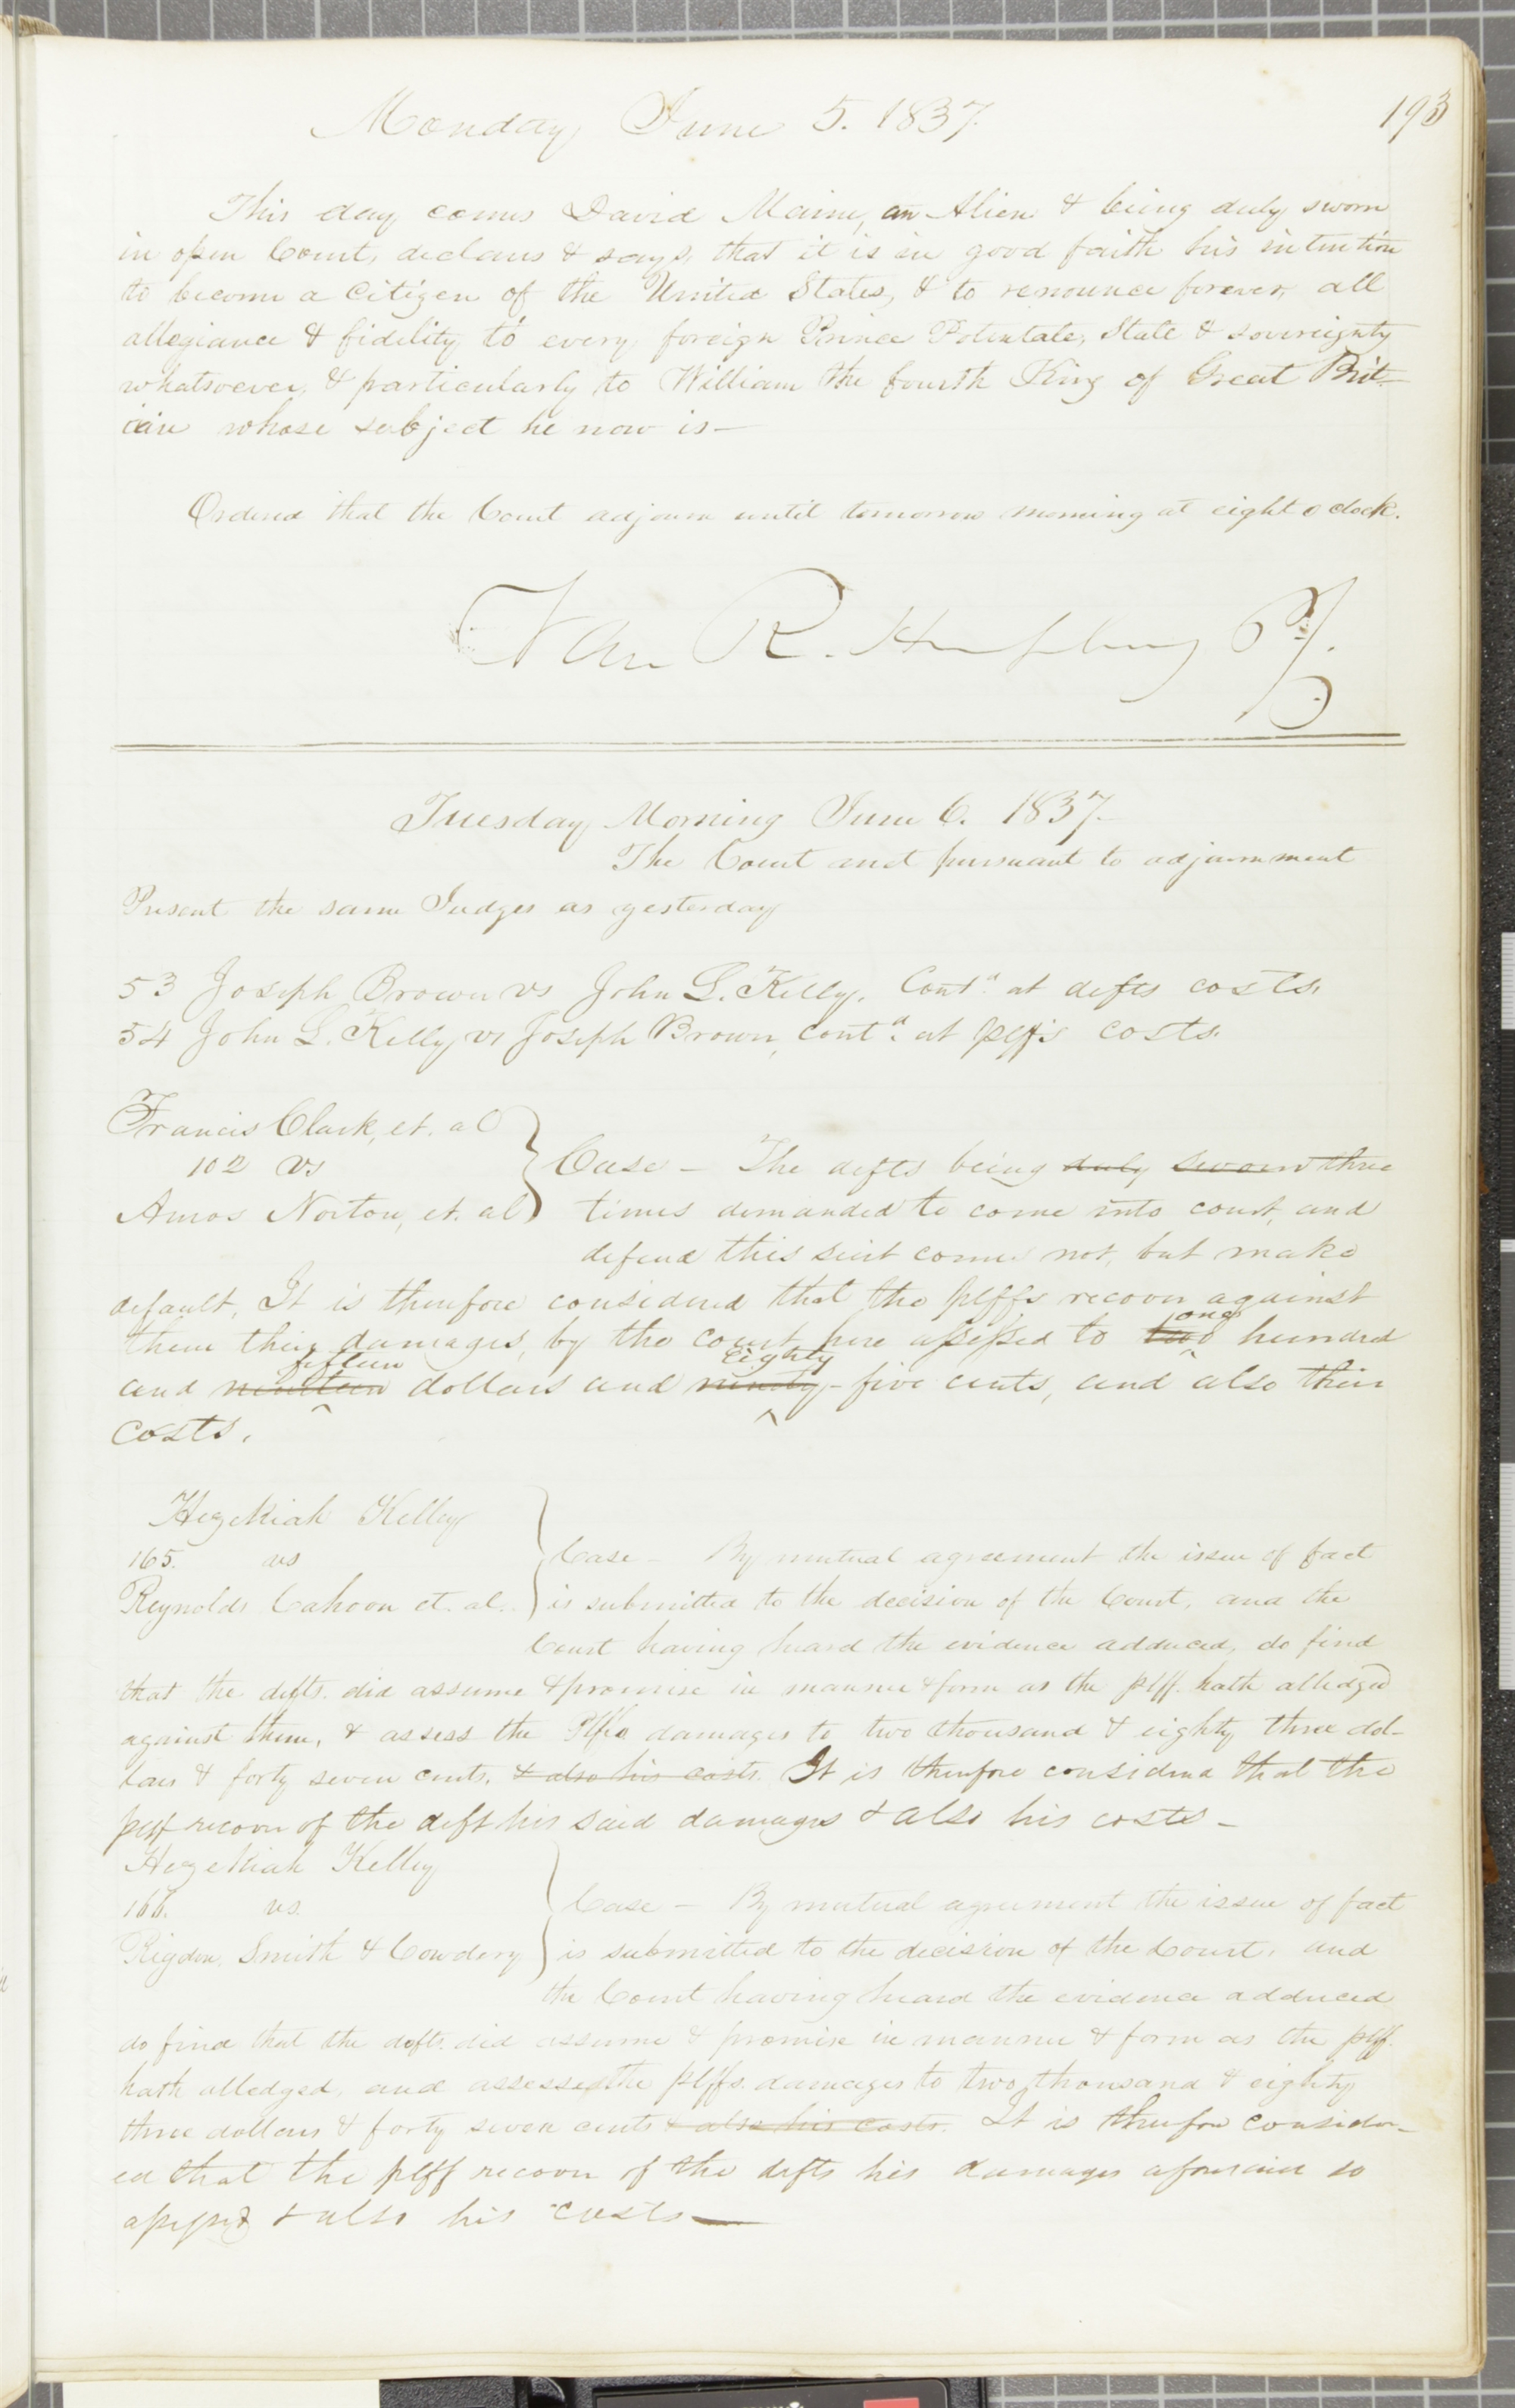 193
Monday June 5. 1837.
This day comes David Maine, an Alien & being duly sworn
in open Court, declares & says, that it is in good faith his intention
to become a Citizen of the United States, & to renounce forever, all
allegiance & fidelity to every foreign Prince Potentate, State & sovereignty
whatsoever, & particularly to William the fourth King of Great Brit-
ain whose subject he now is—
Ordered that the Court adjourn until tomorrow morning at eight o clock.
Van R. Humphrey P J.
Tuesday Morning June 6. 1837.—
The Court met pursuant to adjournment
Present the same Judges as yesterday
53 Joseph Brown vs John L. Kelly. Contd. at defts costs.
54 John L. Kelly vs Joseph Brown, contd. at plffs costs.
Francis Clark, et. al
102 vs
Amos Norton, et. al
Case — The defts being duly sworn three
times demanded to come into court, and
defend this suit comes not, but make
default, It is therefore considered that the plffs recover against
them their damages, by the court here assessed to two one hundred
and nineteen fifteen dollars and ninety eighty-five cents, and also their
costs.
Hezekiah Kelley
165. vs
Reynolds Cahoon et. al.
Case — By mutual agreement the issue of fact
is submitted to the decision of the Court, and the
Court having heard the evidence adduced, do find
that the defts. did assume & promise in manner & form as the plff. hath alledged
against them, & assess the Plffs damages to two thousand & eighty three dol-
lars & forty seven cents, & also his costs. It is therefore considered that the
plff recover of the deft his said damages & also his costs —
Hezekiah Kelley
166. vs.
Rigdon, Smith & Cowdery
Case — By mutual agreement the issue of fact
is submitted to the decision of the Court, and
the Court having heard the evidence adduced
do find that the defts. did assume & promise in manner & form as the plff.
hath alledged, and assessed the plffs. damages to two thousand & eighty
three dollars & forty seven cents & also his costs. It is therefore consider-
ed that the plff recover of the defts his damages aforesaid so
assessed & also his costs —